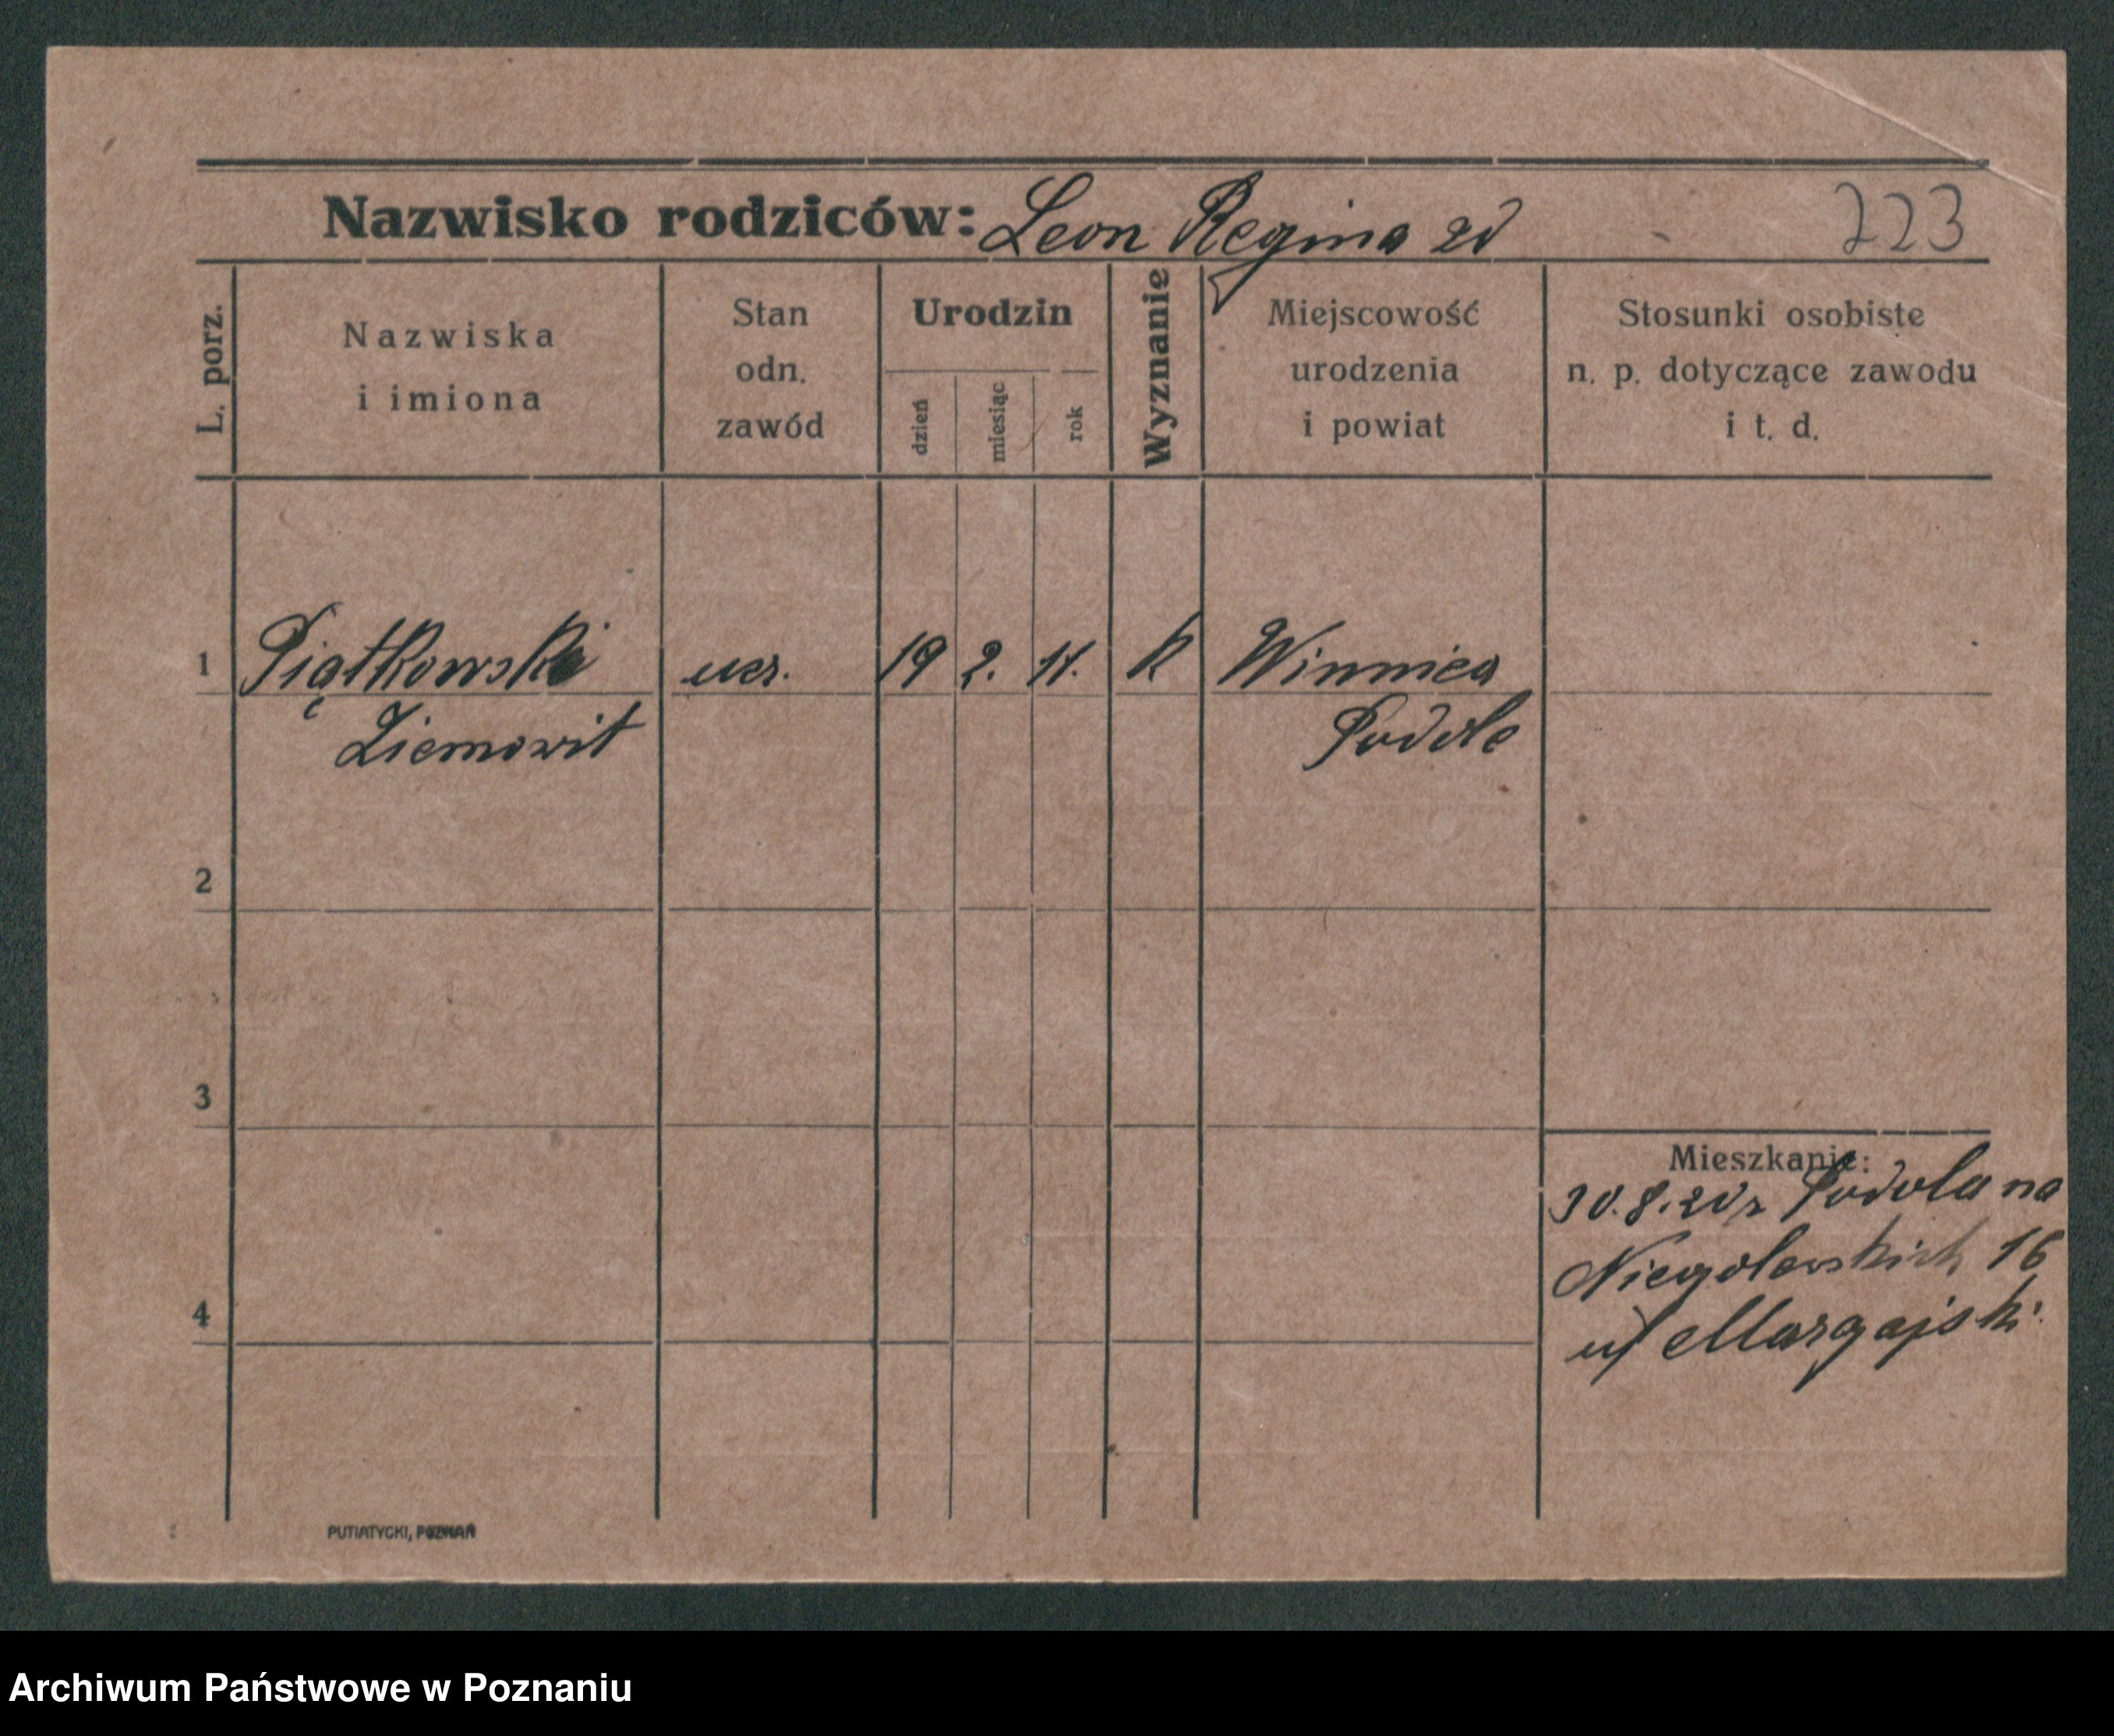 Nazwisko rodziców: Leon Regina zd 223
L. porz.
Nazwiska
i imiona
Stan
odn.
zawód
Urodzin
dzień
miesiąc
rok
Wyznanie
Miejscowość
urodzenia
i powiat
Stosunki osobiste
n. p. dotyczące zawodu
i t. d.
1 Piątkowski ucz. 19 2. 11. K Winnica
Ziemowit Podole
2
3
4
Mieszkanie:
30.8.20 z Podola na
Niegolewskich 16
u
PUTIATYCKI, POZNAŃ
Archiwum Państwowe w Poznaniu